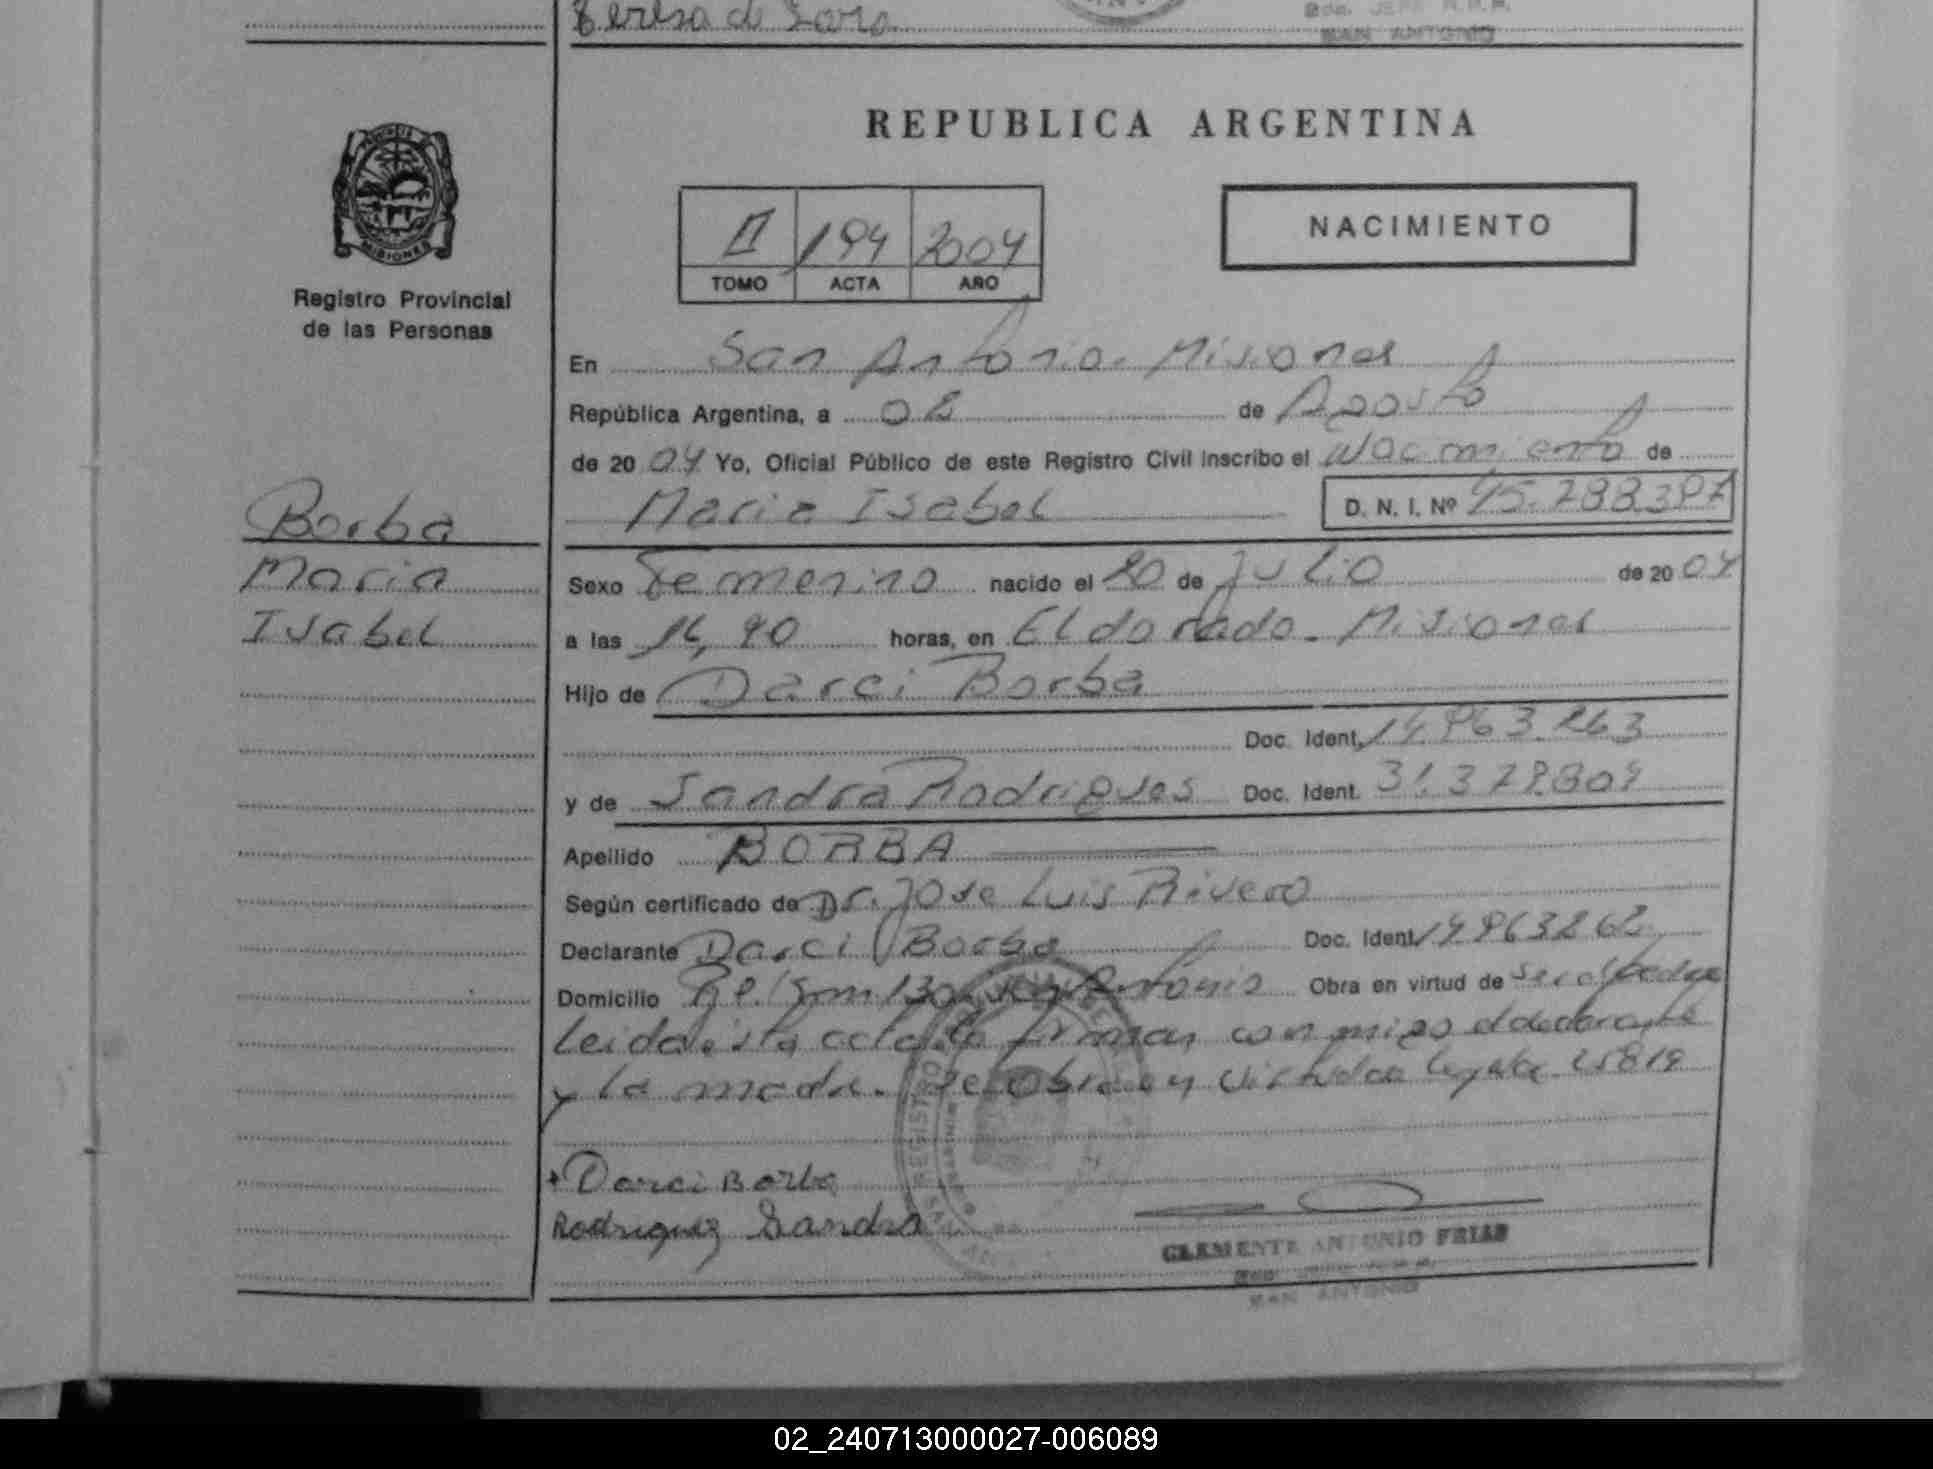 Teresa de Lara
SAN ANTONIO
REPUBLICA ARGENTINA
MISIONES
Registro Provincial
de las Personas
II 194 2004
TOMO ACTA AÑO
NACIMIENTO
En San Antonio. Misiones
República Argentina, a 02 de Agosto
de 2004 Yo, Oficial Público de este Registro Civil Inscribo el Nacimiento de
Maria Isabel D. N. I. Nº 45.788.387
Borba
Maria
Isabel
Sexo Femenino nacido el 20 de Julio de 2004
a las horas, en Eldorado. Misiones
Hijo de Darci Borba
Doc. Ident.
y de Sandra Rodrigues Doc. Ident.
Apellido BORBA
Según certificado de Dr. Jose Luis Rivero
Declarante Darci Borba Doc. Ident.
Domicilio San Antonio Obra en virtud de ser el padre
Leida esta acta la firman conmigo el declarante
y la madre. Se obra en virtud ley 25819
+ Darci Borba
Rodriguez Sandra
CLEMENTE ANTONIO FRIAS
SAN ANTONIO
02_240713000027-006089